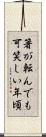 箸が転んでも
可笑しい年頃